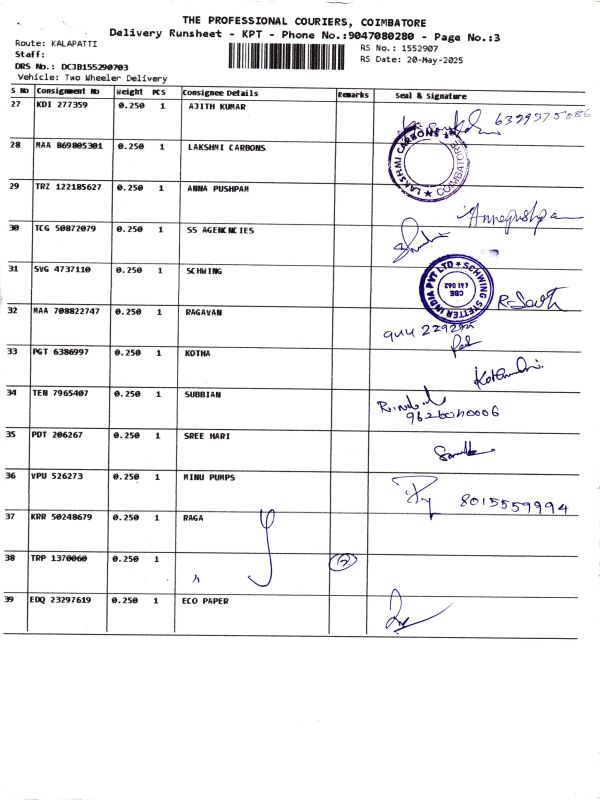 THE PROFESSIONAL COURIERS, COIMBATORE
Delivery Runsheet - KPT - Phone No.:9047080280 - Page No.:3
Route: KALAPATTI
Staff:
DRS No.: DCJB155290703
Vehicle: Two Wheeler Delivery
RS No.: 1552907
RS Date: 20-May-2025
S No Consignment No Weight PCS Consignee Details Remarks Seal & Signature
27 KDI 277359 0.250 1 AJITH KUMAR
28 MAA 869805301 0.250 1 LAKSHMI CARBONS LAKSHMI CARBONS ★ COIMBATORE ★
29 TRZ 122185627 0.250 1 ANNA PUSHPAM Annapushpam
30 TCG 50872079 0.250 1 SS AGENCNCIES
31 SVG 4737110 0.250 1 SCHWING SCHWING STETTER INDIA PVT LTD ★ CBE 641 062
32 MAA 708822747 0.250 1 RAGAVAN
33 PGT 6386997 0.250 1 KOTHA
34 TEN 7965407 0.250 1 SUBBIAN
35 PDT 206267 0.250 1 SREE HARI
36 VPU 526273 0.250 1 MINU PUMPS 8015559994
37 KRR 50248679 0.250 1 RAGA
38 TRP 1370060 0.250 1
39 EDQ 23297619 0.250 1 ECO PAPER